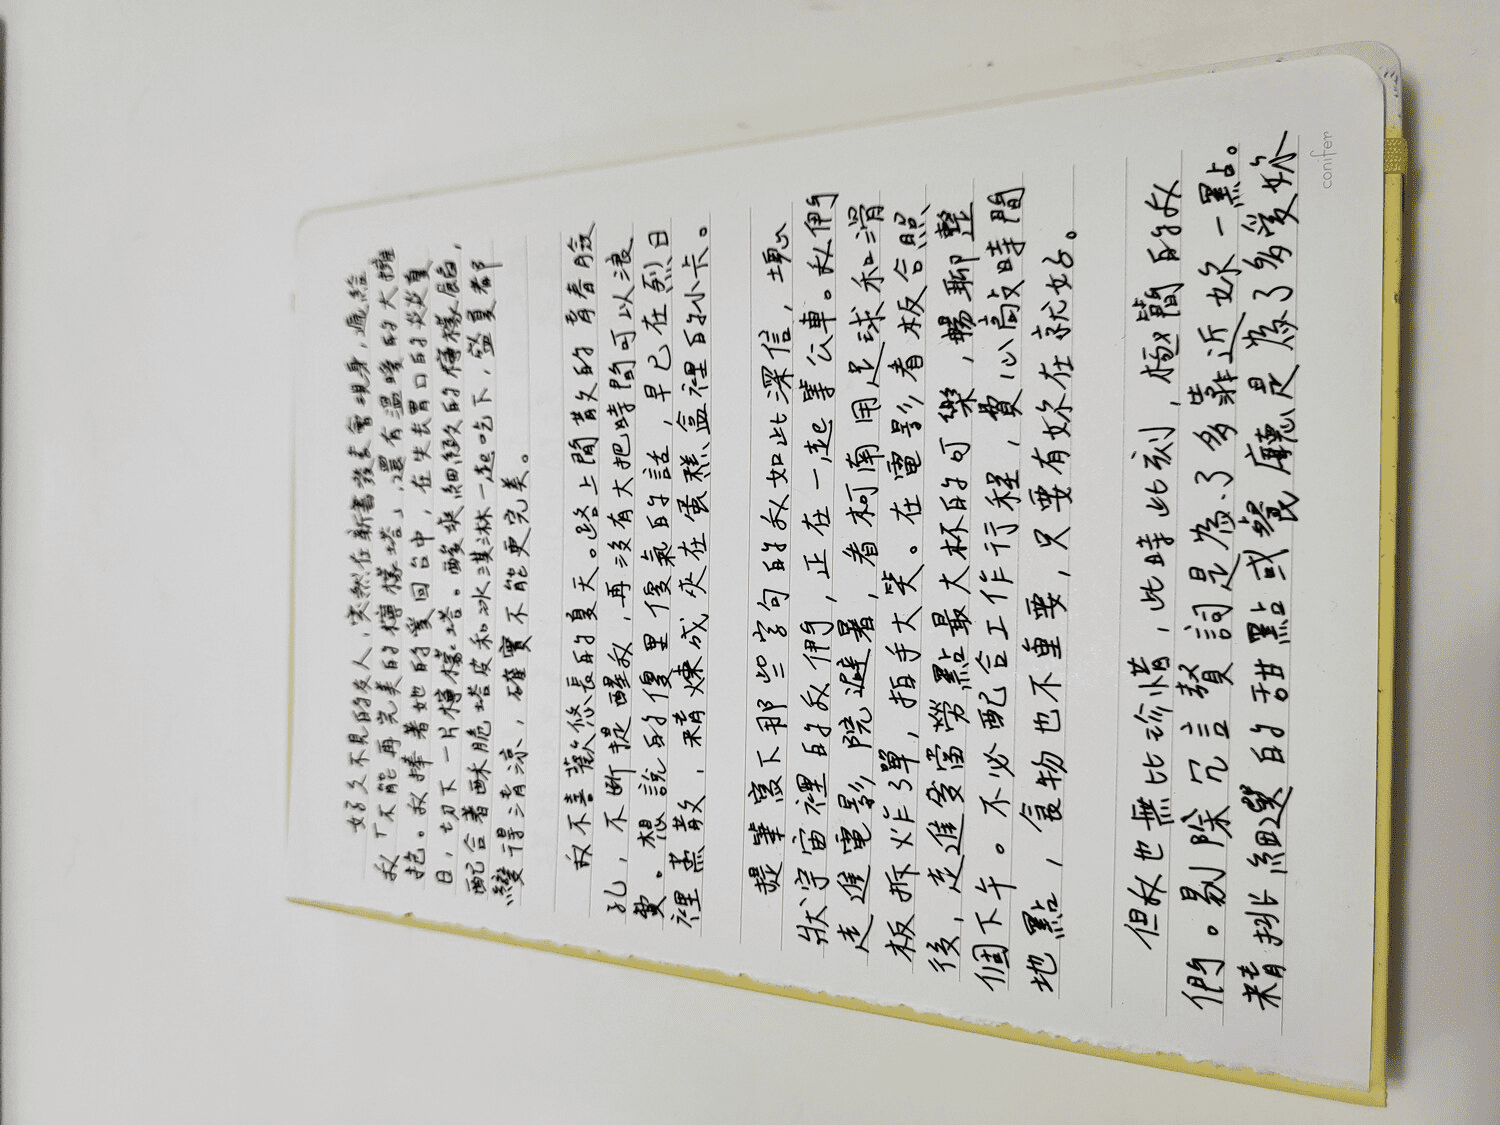 好久不見的友人，突然在新書發表會現身，遞給
我「不能再完美的檸檬塔」，還有溫暖的大擁
抱。我捧著她的愛回台中，在失去胃口的炎炎夏
日，切下一片檸檬塔。酸爽細緻的檸檬凝餡，
配合著酥脆塔皮和冰淇淋一起吃下，盛夏都
變得清涼，確實不能更完美。
我不喜歡悠長的夏天。路上閒散的青春臉
孔，不斷提醒我，再沒有大把時間可以浪
費。想說的傻里傻氣的話，早已在烈日
裡蒸散，精煉成夾在蛋糕盒裡的小卡。
提筆寫下那些字句的我如此深信，塊
狀宇宙裡的我們，正在一起等公車。我們
走進電影院避暑，看柯南用足球和滑
板拆炸彈，拍手大笑。在電影看板合照
後，走進麥當勞點最大杯的可樂，暢聊整
個下午。不必配合工作行程，費心敲時間
地點，食物也不重要，只要有妳在就好。
但我也無比珍惜，此時此刻，極簡的我
們。剔除冗言贅詞是為了多靠近妳一點。
精挑細選的甜點或餐廳是為了多愛妳
conifer